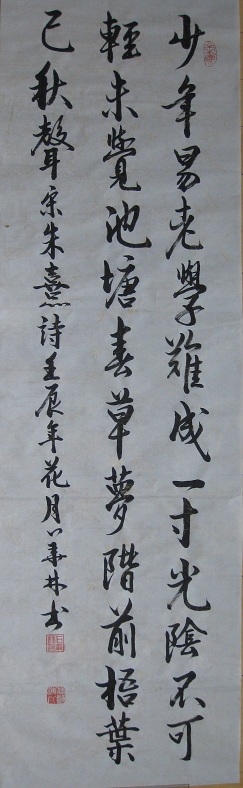 少年易老學難成一寸光陰不可
輕未覺池塘春草夢階前梧葉
已秋聲 宋朱熹詩 壬辰年花月 華林书